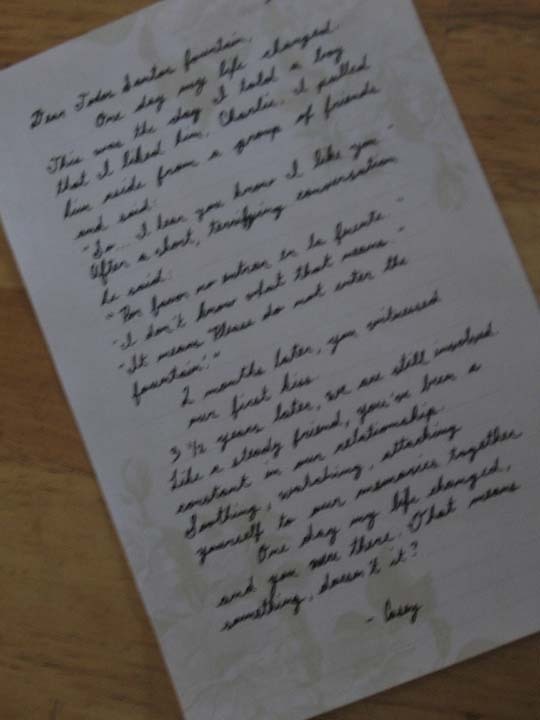 Dear Todos Santos fountain,
One day my life changed.
This was the day I told a boy
that I liked him, Charlie. I pulled
him aside from a group of friends
and said:
"So... I hear you know I like you."
After a short, terrifying conversation,
he said:
"Por favor no entran en la fuente."
"I don't know what that means."
"It means 'Please do not enter the
fountain.'"
2 months later, you witnessed
our first kiss.
3 1/2 years later, we are still involved.
Like a steady friend, you've been a
constant in our relationship.
Soothing, watching, attaching
yourself to our memories together
One day my life changed,
and you were there. That means
something, doesn't it?
- Casey